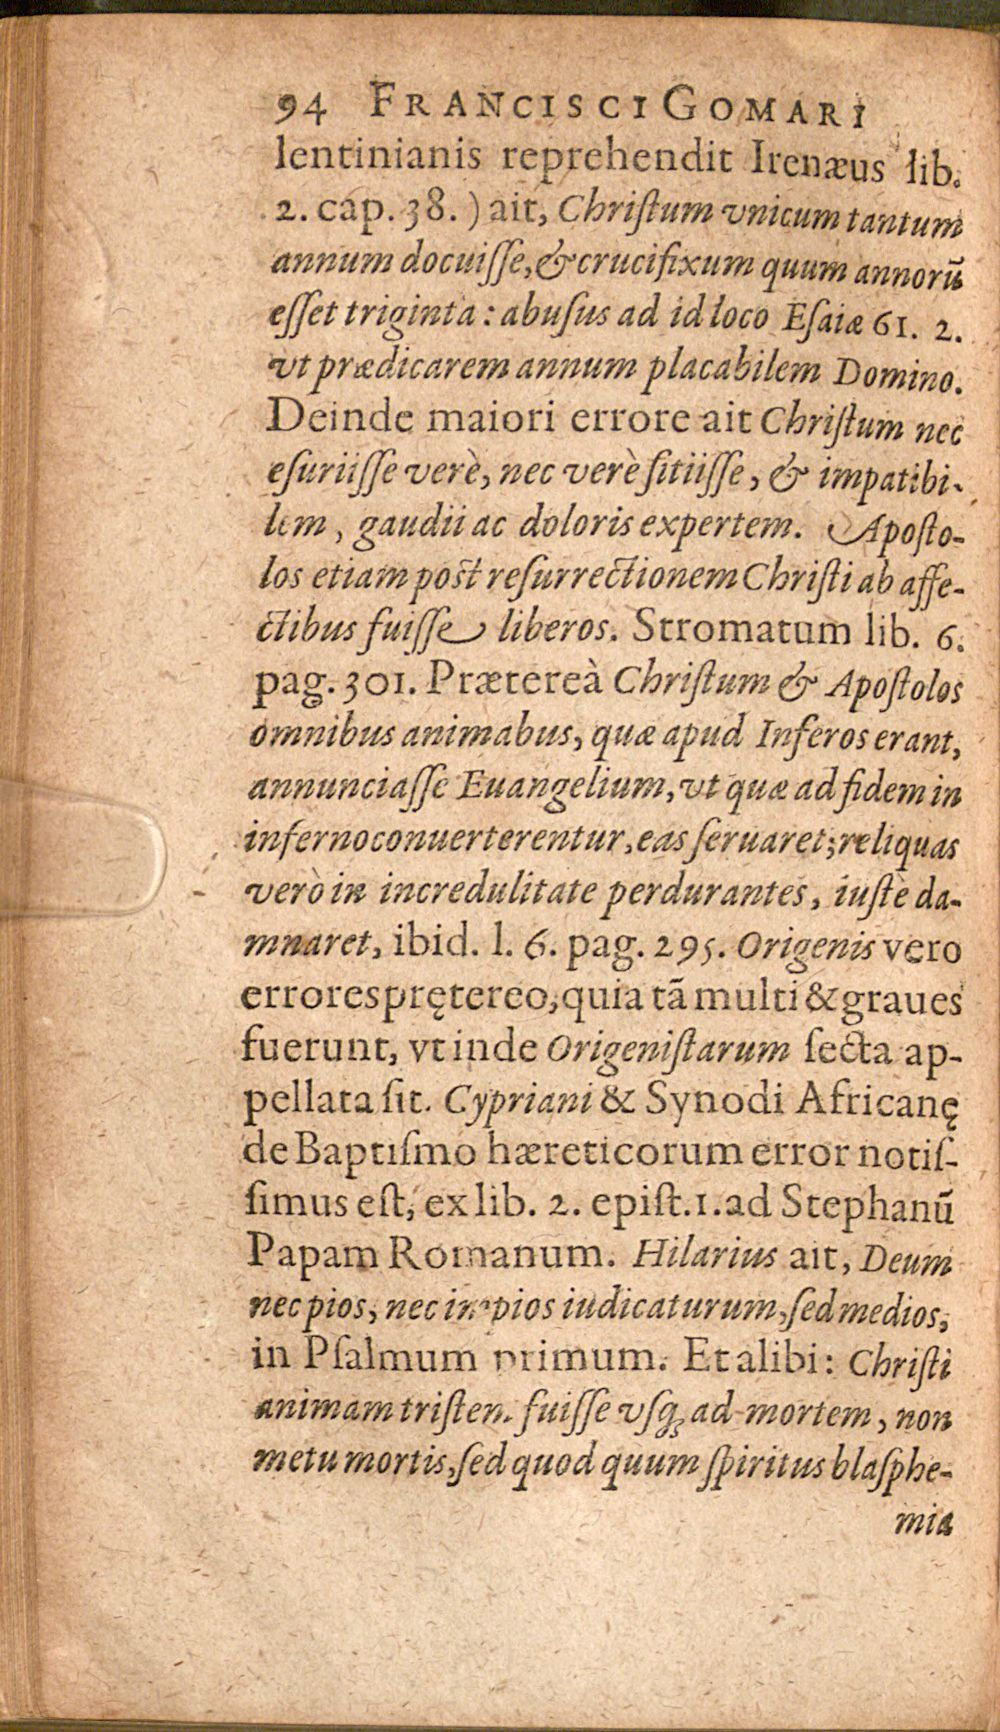 94 FRANCISCI GOMARI
lentinianis reprehendit Irenæus lib.
2. cap. 38. ) ait, Chriſtum vnicum tantum
annum docuiſſe, & crucifixum quum annorũ
eſſet triginta : abuſus ad id loco Eſaiæ 61. 2.
vt prædicarem annum placabilem Domino.
Deinde maiori errore ait Chriſtum nec
eſuriiſſe verè, nec verè ſitiiſſe, & impatibi-
lem, gaudii ac doloris expertem. Apoſto-
los etiam poſt reſurrectionem Chriſti ab affe-
ctibus fuiſſe liberos. Stromatum lib. 6.
pag. 301. Prætereà Chriſtum & Apoſtolos
omnibus animabus, quæ apud Inferos erant,
annunciaſſe Euangelium, vt quæ ad fidem in
inferno conuerterentur, eas ſeruaret; reliquas
verò in incredulitate perdurantes, iuſtè da-
mnaret, ibid. l. 6. pag. 295. Origenis vero
errores prętereo, quia tã multi & graues
fuerunt, vt inde Origeniſtarum ſecta ap-
pellata ſit. Cypriani & Synodi Africanę
de Baptiſmo hæreticorum error notiſ-
ſimus eſt, ex lib. 2. epiſt. 1. ad Stephanũ
Papam Romanum. Hilarius ait, Deum
nec pios, nec impios iudicaturum, ſed medios,
in Pſalmum primum. Et alibi : Chriſti
animam triſtem fuiſſe vſq; ad mortem, non
metu mortis, ſed quod quum ſpiritus blaſphe-
mia